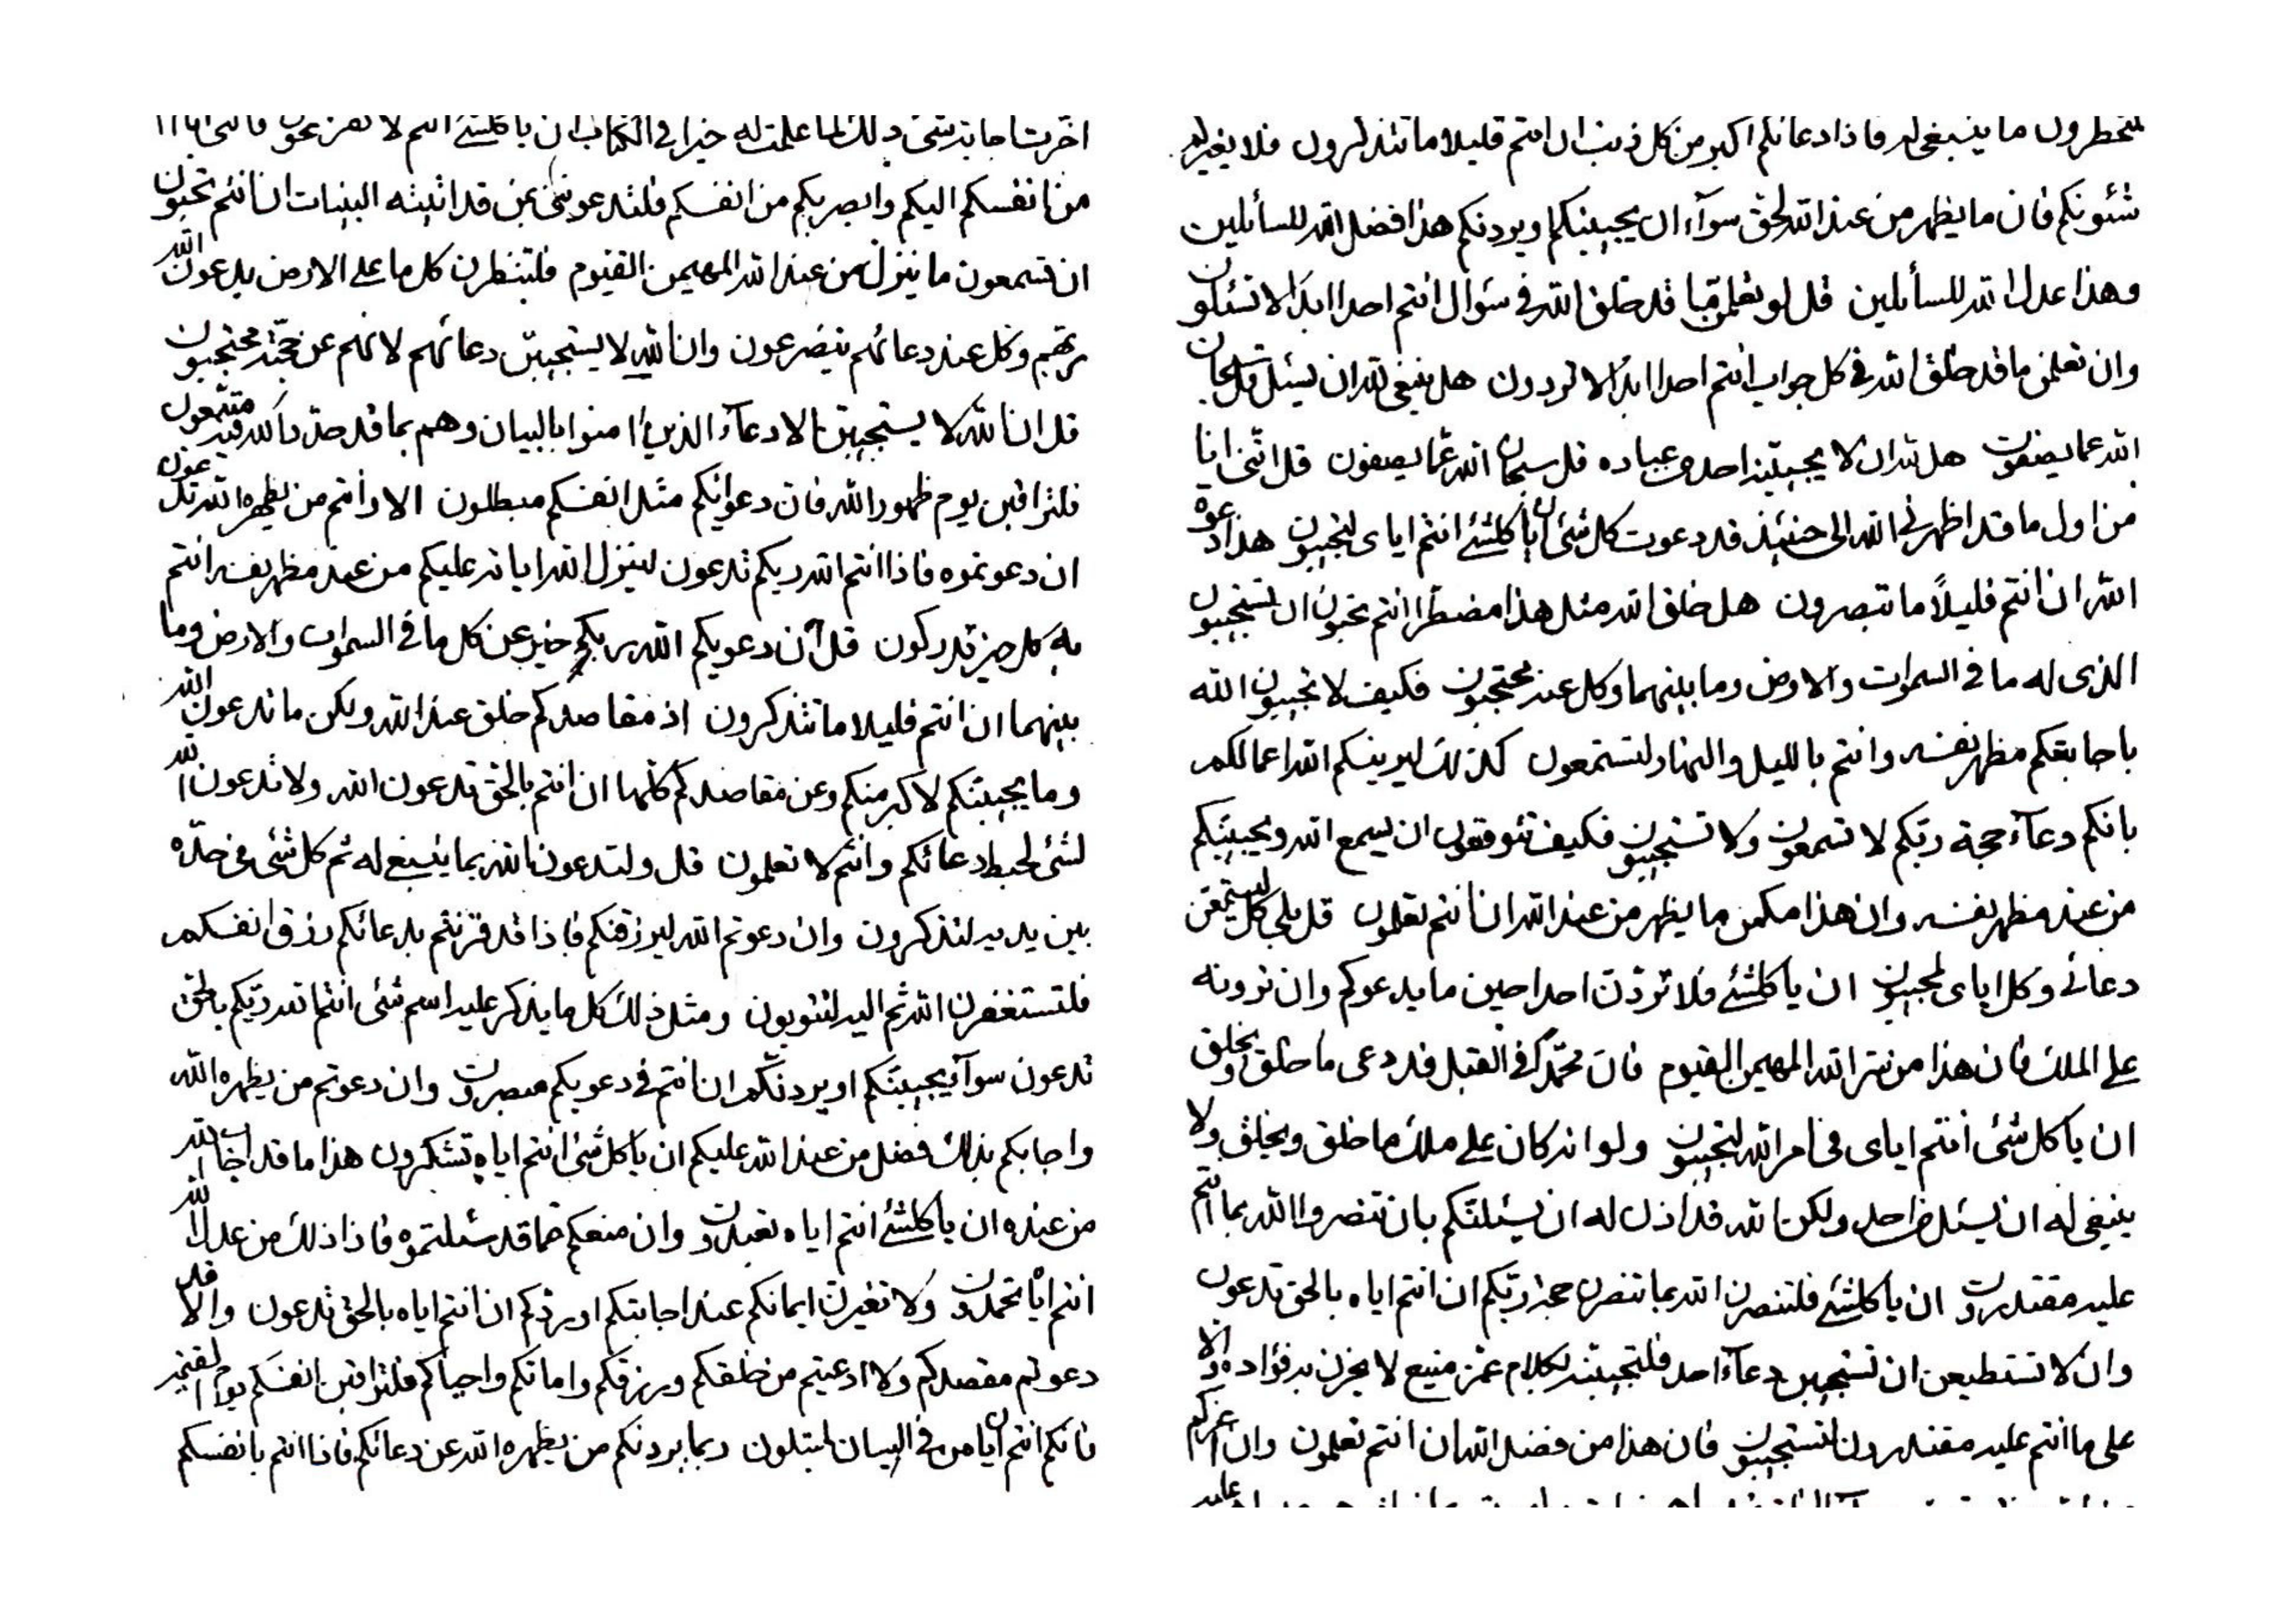 لتخطرون ما ينبغي له فاذا دعائكم اكبر من كل ذنب ان انتم قليلا ما تتذكرون فلا يغيرنكم
شئونكم فان ما يظهر من عند الله لحق سوآء ان يجيبنكم او يردنكم هذا فضل الله للسائلين
وهذا عدل الله للسائلين قل لو تعلمن قد خلق الله في سئوال انتم احدا ابدا لا تسئلون
وان تعلمن ما قد خلق الله في كل جواب انتم احدا ابدا لا تردون هل ينبغي لله ان يسئل قل سبحان
الله عما يصفون هل لله ان لا يجيبنه احد من عباده قل سبحان الله عما يصفون قل انني انا
من اول ما قد اظهرني الله الى حينئذ قد دعوت كل شئ ان يا كلشئ انتم اياى لتجيبون هذا دعوة
الله ان انتم قليلاً ما تبصرون هل خلق الله مثل هذا مضطرا انتم تحبون ان تستجيبون
الذى له ما في السموات والارض وما بينهما وكل عنه محتجبون فكيف لا تجيبون الله
باجابتكم مظهر نفسه وانتم بالليل والنهار لتستمعون كذلك ليرينكم الله اعمالكم
بانكم دعآء حجة ربكم لا تسمعون ولا تستجيبون فكيف تتوقعون ان يسمع الله ويجيبنكم
من عند مظهر نفسه وان هذا مكمن ما يظهر من عند الله ان انتم تعلمون قل بلى كل ليستمعن
دعائى وكل اياى لمجيبون ان يا كلشئ فلا تردن احدا حين ما يدعوكم وان ترونه
على الملك فان هذا من ستر الله المهيمن القيوم فان محمدا في القبل قد دعى ما خلق ويخلق
ان يا كل شئ انتم اياى في امر الله لتجيبون ولو انه كان على ملك ما خلق ويخلق ولا
ينبغي له ان يسئل من احد ولكن الله قد اذن له ان يسئلنكم بان تنصروا الله بما انتم
عليه مقتدرون ان يا كلشئ فلتنصرن الله بما تنصرن حجة ربكم ان انتم اياه بالحق تدعون
وان لا تستطيعن ان تستجيبن دعآء احد فلتجيبنه بكلام عز منيع لا يحزن به فؤاده والا
على ما انتم عليه مقتدرون لتستجيبون فان هذا من فضل الله ان انتم تعلمون وان
اخرت اجابته شئ ذلك لما علمت له خيرا في الكتاب ان يا كلشئ انتم لا تفزعون فانني انا
من انفسكم اليكم وابصر بكم من انفسكم فلتدعونني عمن قد اتيته البينات ان انتم تحبون
ان تسمعون ما ينزل من عند الله المهيمن القيوم فلتنظرن كل ما على الارض يدعون الله
ربهم وكل عند دعائهم يتضرعون وان الله لا يستجيبن دعائهم لانهم عن حجته محتجبون
قل ان الله لا يستجيبن الا دعآء الذين امنوا بالبيان وهم بما قد حدد الله فيه متبعون
فلتراقبن يوم ظهور الله فان دعوانكم مثل انفسكم مبطلون الا وانتم من يظهره الله تدعون
ان دعوتموه فاذا انتم الله ربكم تدعون لينزل الله اياته عليكم من عند مظهر نفسه انتم
به كل خير تدركون قل ان دعويكم الله ربكم خير عن كل ما في السموات والارض وما
بينهما ان انتم قليلا ما تتذكرون اذ مقاصدكم خلق عند الله ولكن ما تدعون الله
وما يجيبنكم لاكبر منكم وعن مقاصدكم كلها ان انتم بالحق تدعون الله ولا تدعون الله
لشئ لحبط دعائكم وانتم لا تعلمون قل ولتدعون الله بما ينبغي له ثم كل شئ في حده
بين يديه لتذكرون وان دعوتم الله ليرزقنكم فاذا قد قرنتم بدعائكم رزق انفسكم
فلتستغفرن الله ثم اليه لتتوبون ومثل ذلك كل ما يذكر عليه اسم شئ انتم الله ربكم بالحق
تدعون سوآء يجيبنكم او يردنكم ان انتم في دعويكم مصبرون وان دعوتم من يظهره الله
واجابكم بذلك فضل من عند الله عليكم ان يا كل شئ انتم اياه تشكرون هذا ما قد اجاب الله
من عنده ان يا كلشئ انتم اياه تعبدون وان منعكم عما قد سئلتموه فاذا ذلك من عدل الله
انتم اياه تحمدون ولا تغيرن ايمانكم عند اجابتكم او ردكم ان انتم اياه بالحق تدعون والا قد
دعوتم مقصدكم ولا ادعيتم من خلقكم ورزقكم واماتكم واحياكم فلتراقبن انفسكم يوم القيمة
فانكم انتم ايام من في البيان لتبتلون ربما يردنكم من يظهره الله عن دعائكم فاذا انتم بانفسكم